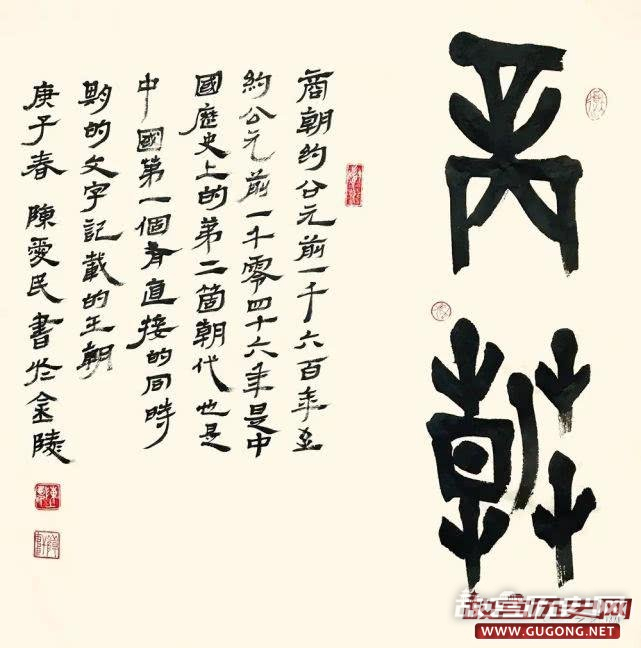 商朝
商朝约公元前一千六百年至
約公元前一千零四十六年是中
國歷史上的第二箇朝代也是
中國第一個有直接的同時
期的文字記載的王朝
庚子春 陳愛民書於金陵
故宫历史网
WWW.GUGONG.NET